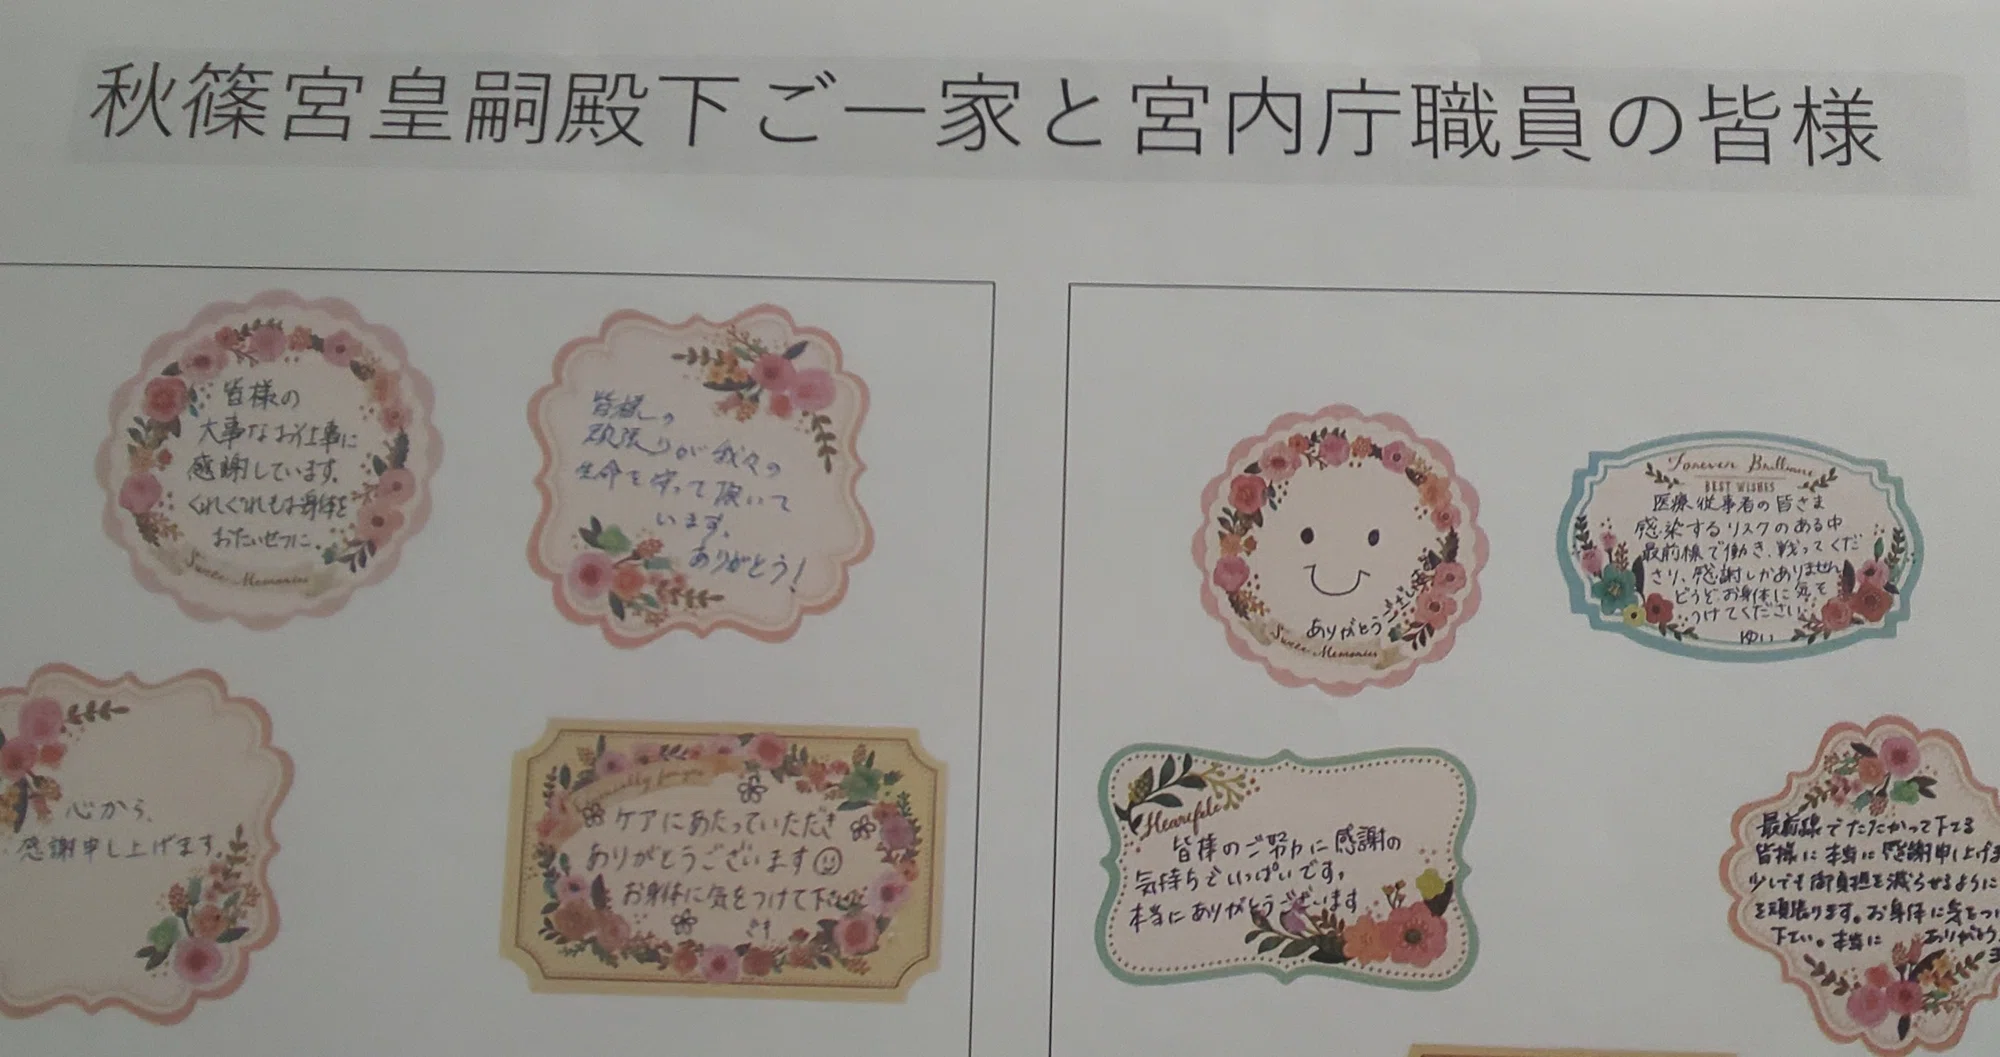 秋篠宮皇嗣殿下ご一家と宮内庁職員の皆様
皆様の
大事なお仕事に
感謝しています。
くれぐれもお身体を
おたいせつに。
Sweet Memories
皆様の
頑張りが我々の
生命を守って頂いて
います。
ありがとう!
心から、
感謝申し上げます。
ケアにあたっていただき
ありがとうございます
お身体に気をつけて下さい
ありがとうござい
Sweet Memories
Forever Brilliance
BEST WISHES
医療従事者の皆さま
感染するリスクのある中
最前線で働き、戦ってくだ
さり、感謝しかありません
どうぞお身体に気を
つけてください
ゆい
Heartfelt
皆様のご努力に感謝の
気持ちでいっぱいです。
本当にありがとうございます
最前線でたたかって下さる
皆様に本当に感謝申し上げま
少しでも御負担を減らせるように
を頑張ります。お身体に気をつけ
下さい。本当に ありがとう